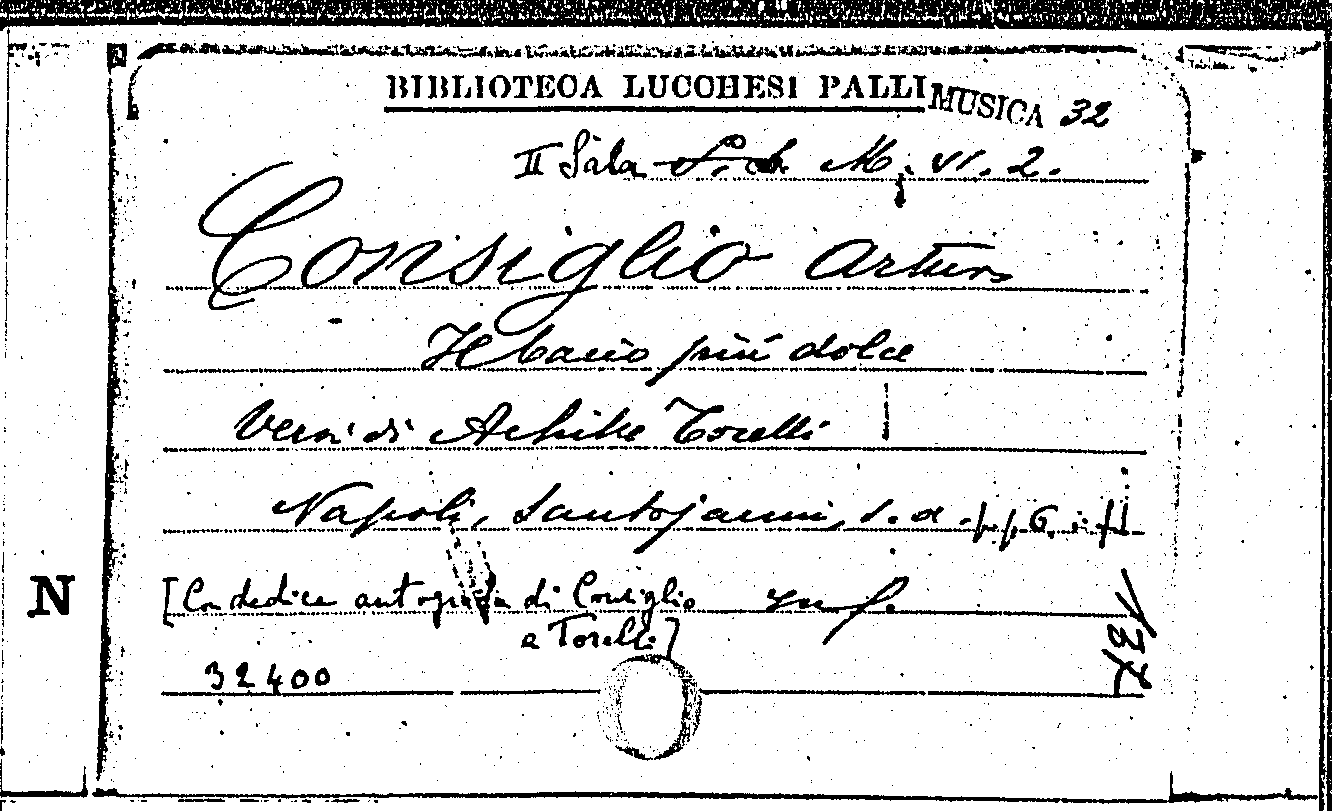 BIBLIOTECA LUCCHESI PALLI MUSICA 32
II Sala M. VI. 2.
Consiglio Arturo
Il bacio più dolce
Versi di Achille Torelli
Napoli, Santojanni, s. d. pp. 6. in f.
[Con dedica autografa di Consiglio
a Torelli]
32400
N
137